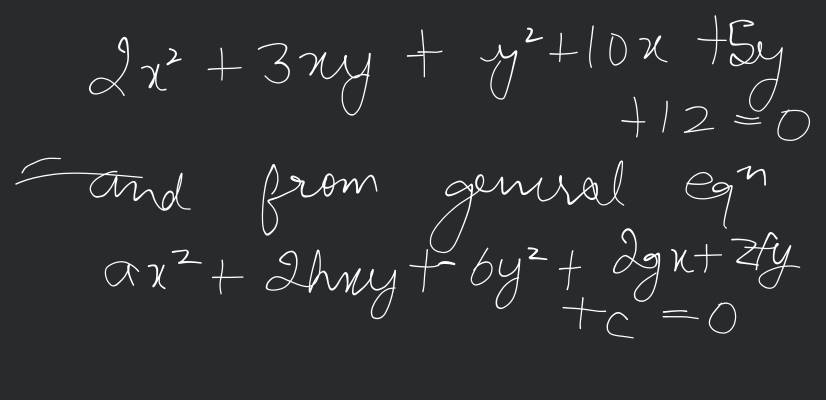 2x² + 3xy + y² + 10x + 5y
+ 12 = 0
and from general eqⁿ
ax² + 2hxy + by² + 2gx + 2fy
+ c = 0